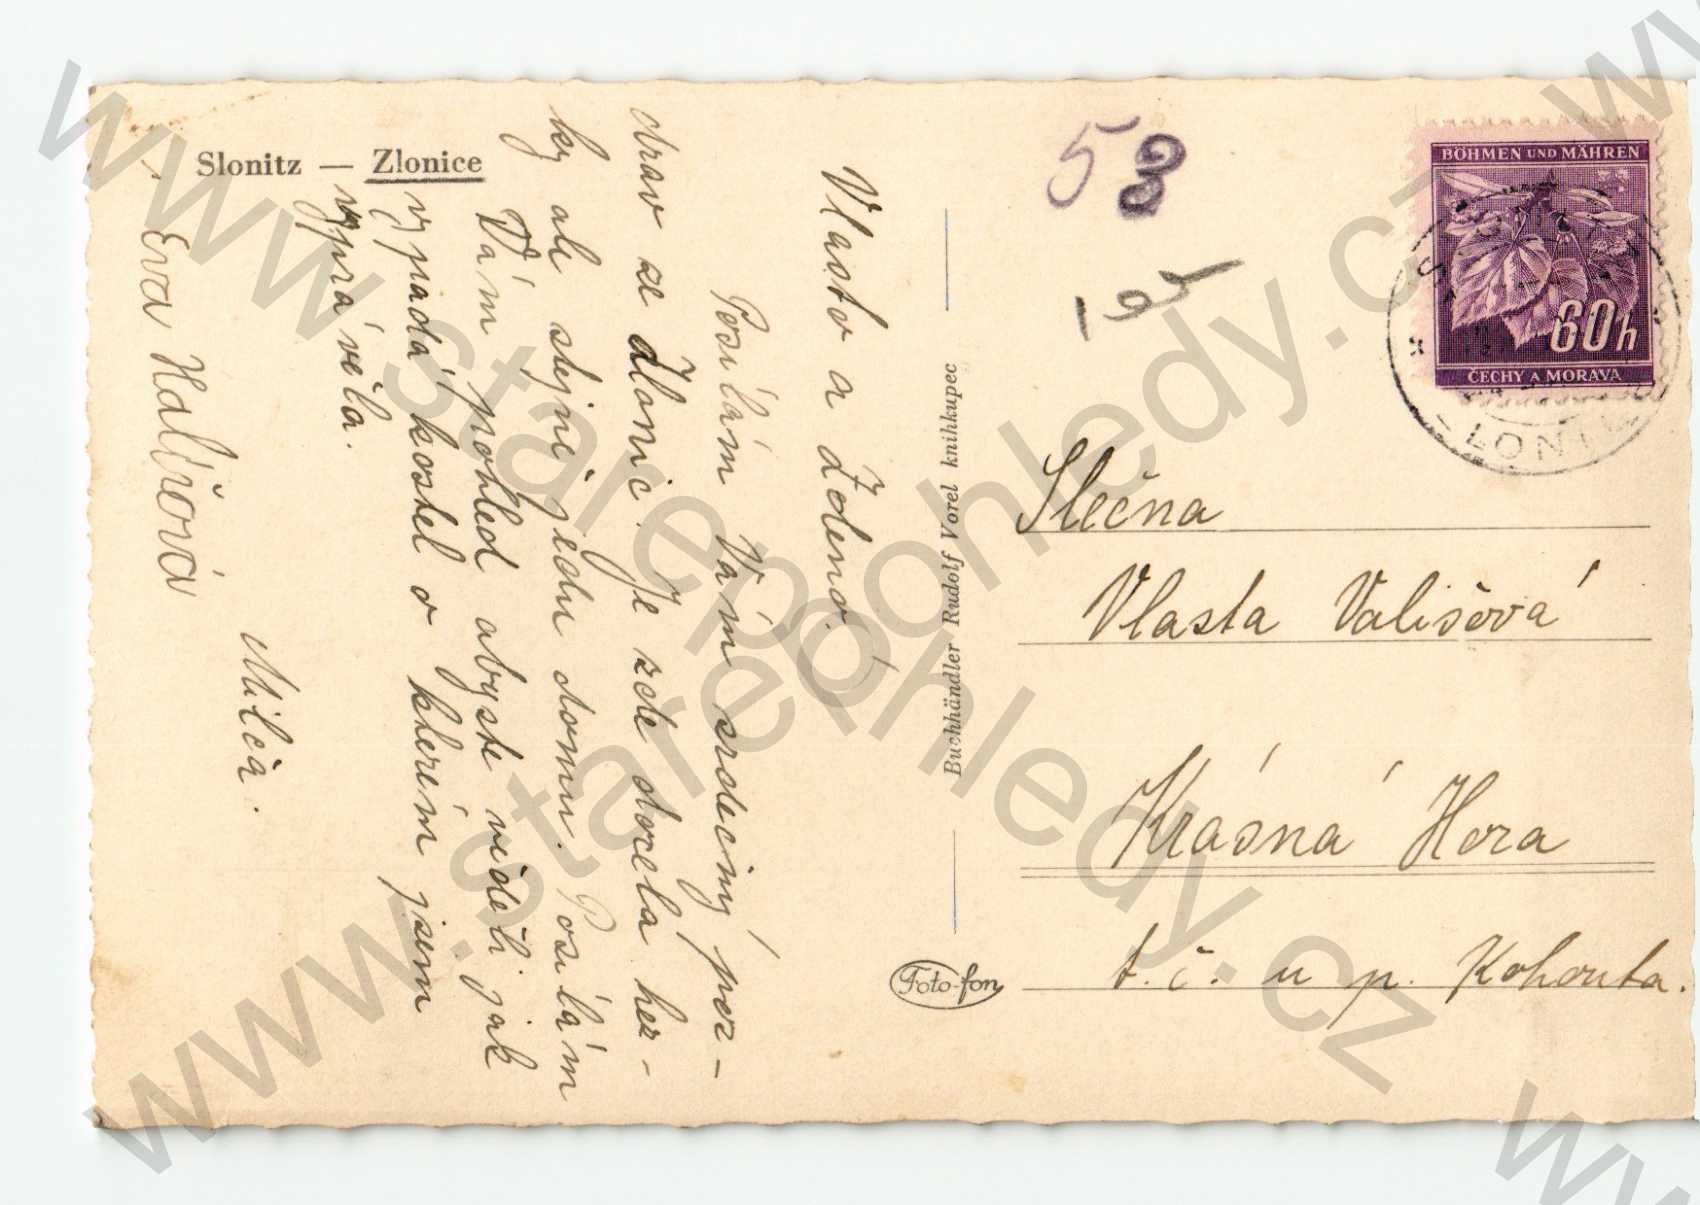 Slonitz — Zlonice
Vlasto a Zdeno!
Posílám Vám srdečný poz-
drav ze Zlonic. Je zde docela hez-
ky ale stejně jedu domu. Posílám
Vám pohled abyste viděli jak
vypadá kostel o kterém jsem
vyprávěla.
Milča.
Eva Halířová
Buchhändler Rudolf Vorel knihkupec
Foto-fon
53
BÖHMEN UND MÄHREN
60h
ČECHY A MORAVA
Slečna
Vlasta Vališová
Krásná Hora
t. č. u p. Kohouta.
www.starepohledy.cz
www.starepohledy.cz